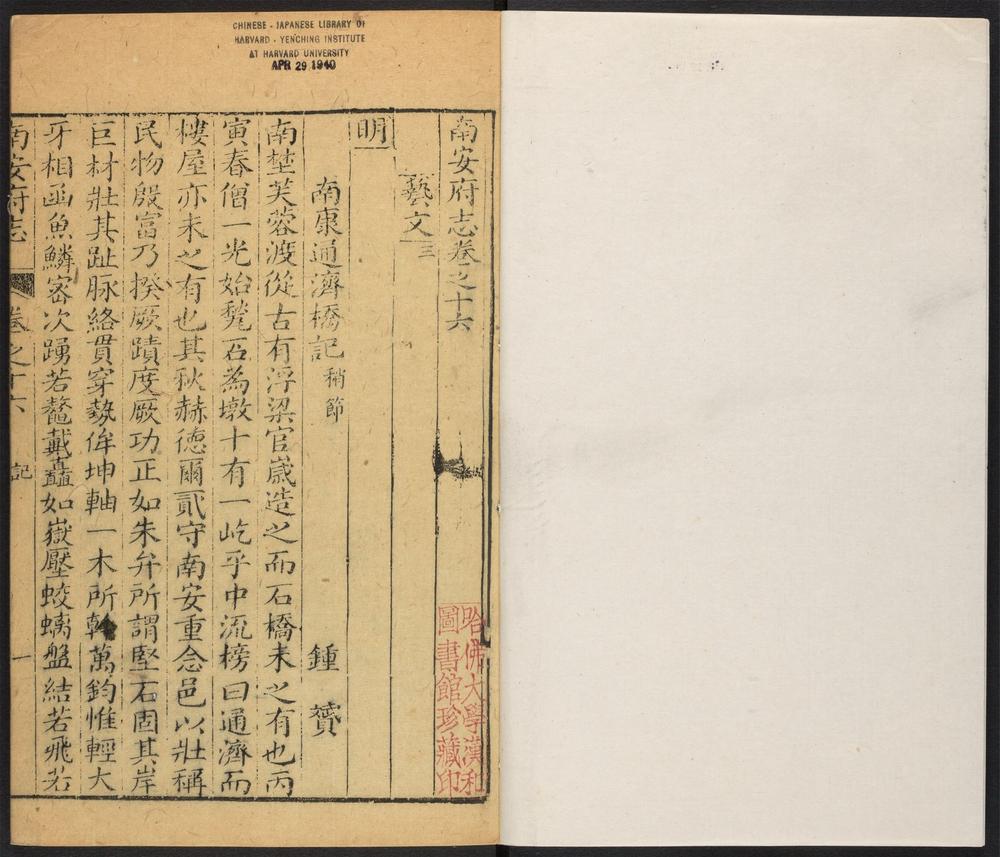 CHINESE - JAPANESE LIBRARY OF
HARVARD - YENCHING INSTITUTE
AT HARVARD UNIVERSITY
APR 29 1940
南安府志卷之十六
藝文三
明
南康通濟橋記 稍節 鍾贇
南埜芙蓉渡從古有浮梁官嵗造之而石橋未之有也丙
寅春僧一光始甃石為墩十有一屹乎中流榜曰通濟而
樓屋亦未之有也其秋赫德爾貳守南安重念邑以壯稱
民物殷富乃揆厥蹟度厥功正如朱弁所謂堅石固其岸
巨材壯其趾脉絡貫穿勢侔坤軸一木所幹萬鈞惟輕大
牙相函魚鱗宻次踴若鼇戴矗如嶽壓蛟螭盤結若飛若
南安府志 卷之十六 記 一
哈佛大學漢和
圖書館珍藏印